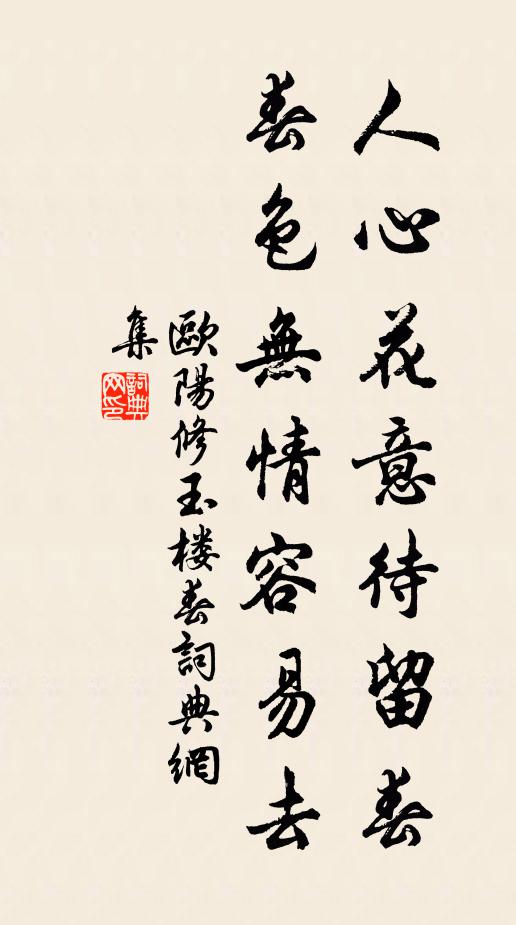 人心花意待留春
春色無情容易去
歐陽修玉楼春詞典網
集
詞典
网印